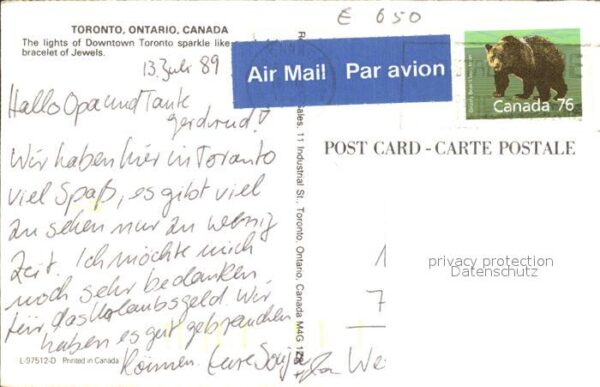 TORONTO, ONTARIO, CANADA
The lights of Downtown Toronto sparkle like
bracelet of Jewels.
13. Juli 89
Hallo Opa und Tante
gerdrud!
Wir haben hier in Toranto
viel Spaß, es gibt viel
zu sehen nur zu wenig
Zeit. Ich möchte mich
noch sehr bedanken
für das Urlaubsgeld. Wir
haben es gut gebrauchen
können. Eure
L-97512-D Printed in Canada
Sales, 11 Industrial St., Toronto, Ontario, Canada M4G 1Z
E 650
Air Mail Par avion
Canada 76
POST CARD - CARTE POSTALE
1
7
privacy protection
Datenschutz